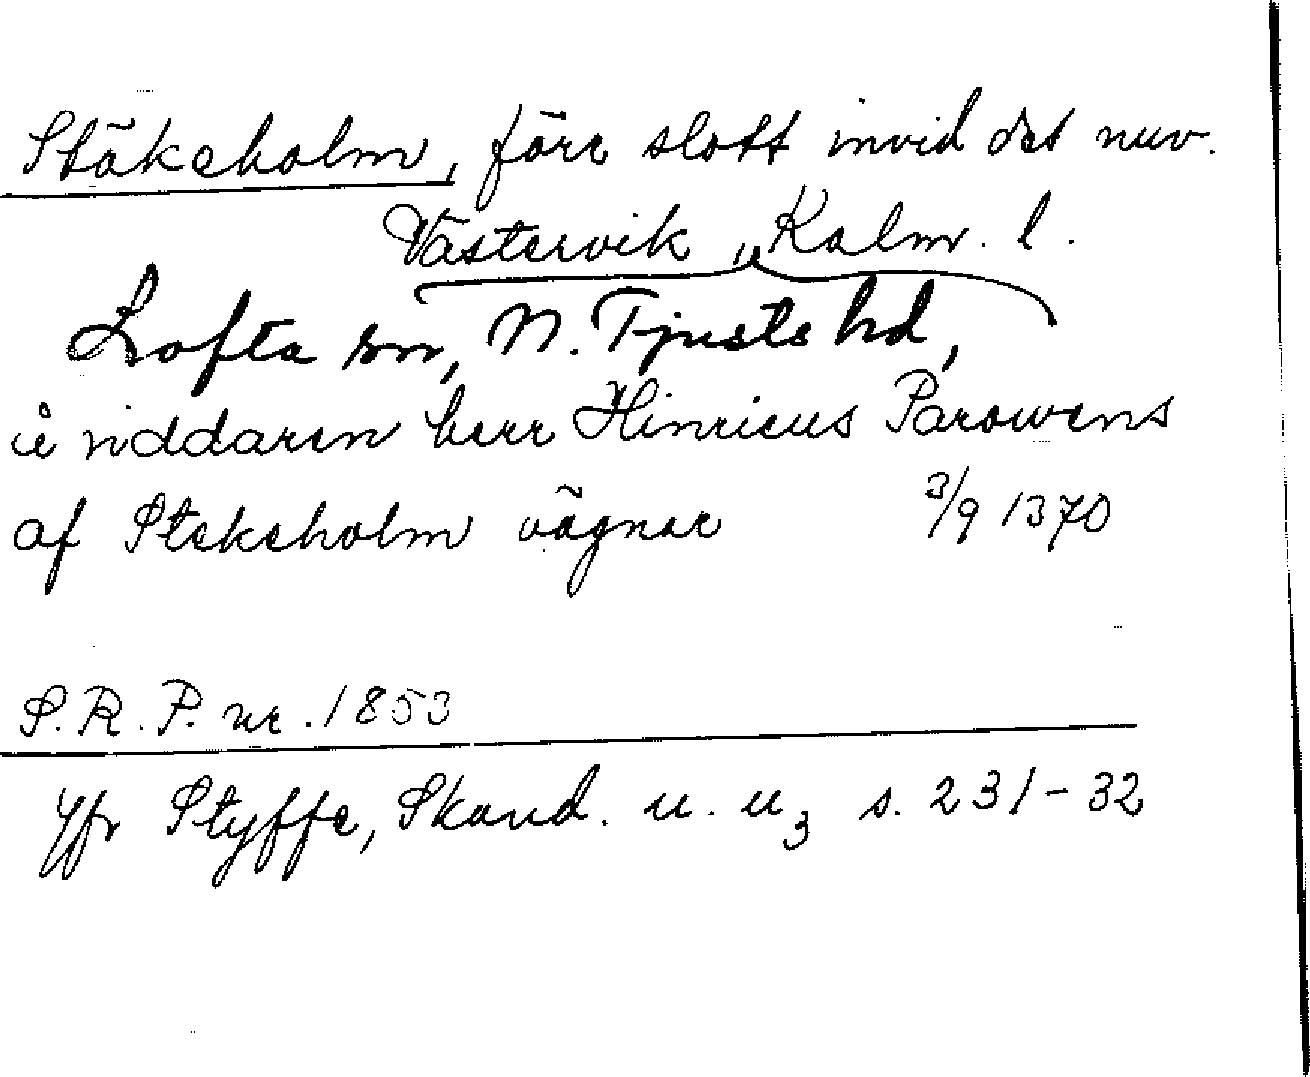 Stäkeholm, förr slott invid det nuv.
Västervik, Kalm. l.
Lofta sn, N. Tjusts hd,
å riddaren herr Hinricus Parowens
af Stekeholm vägnar 3/9 1370
S.R.P. nr. 1853
Jfr Styffe, Skand. u. u3 s. 231-32